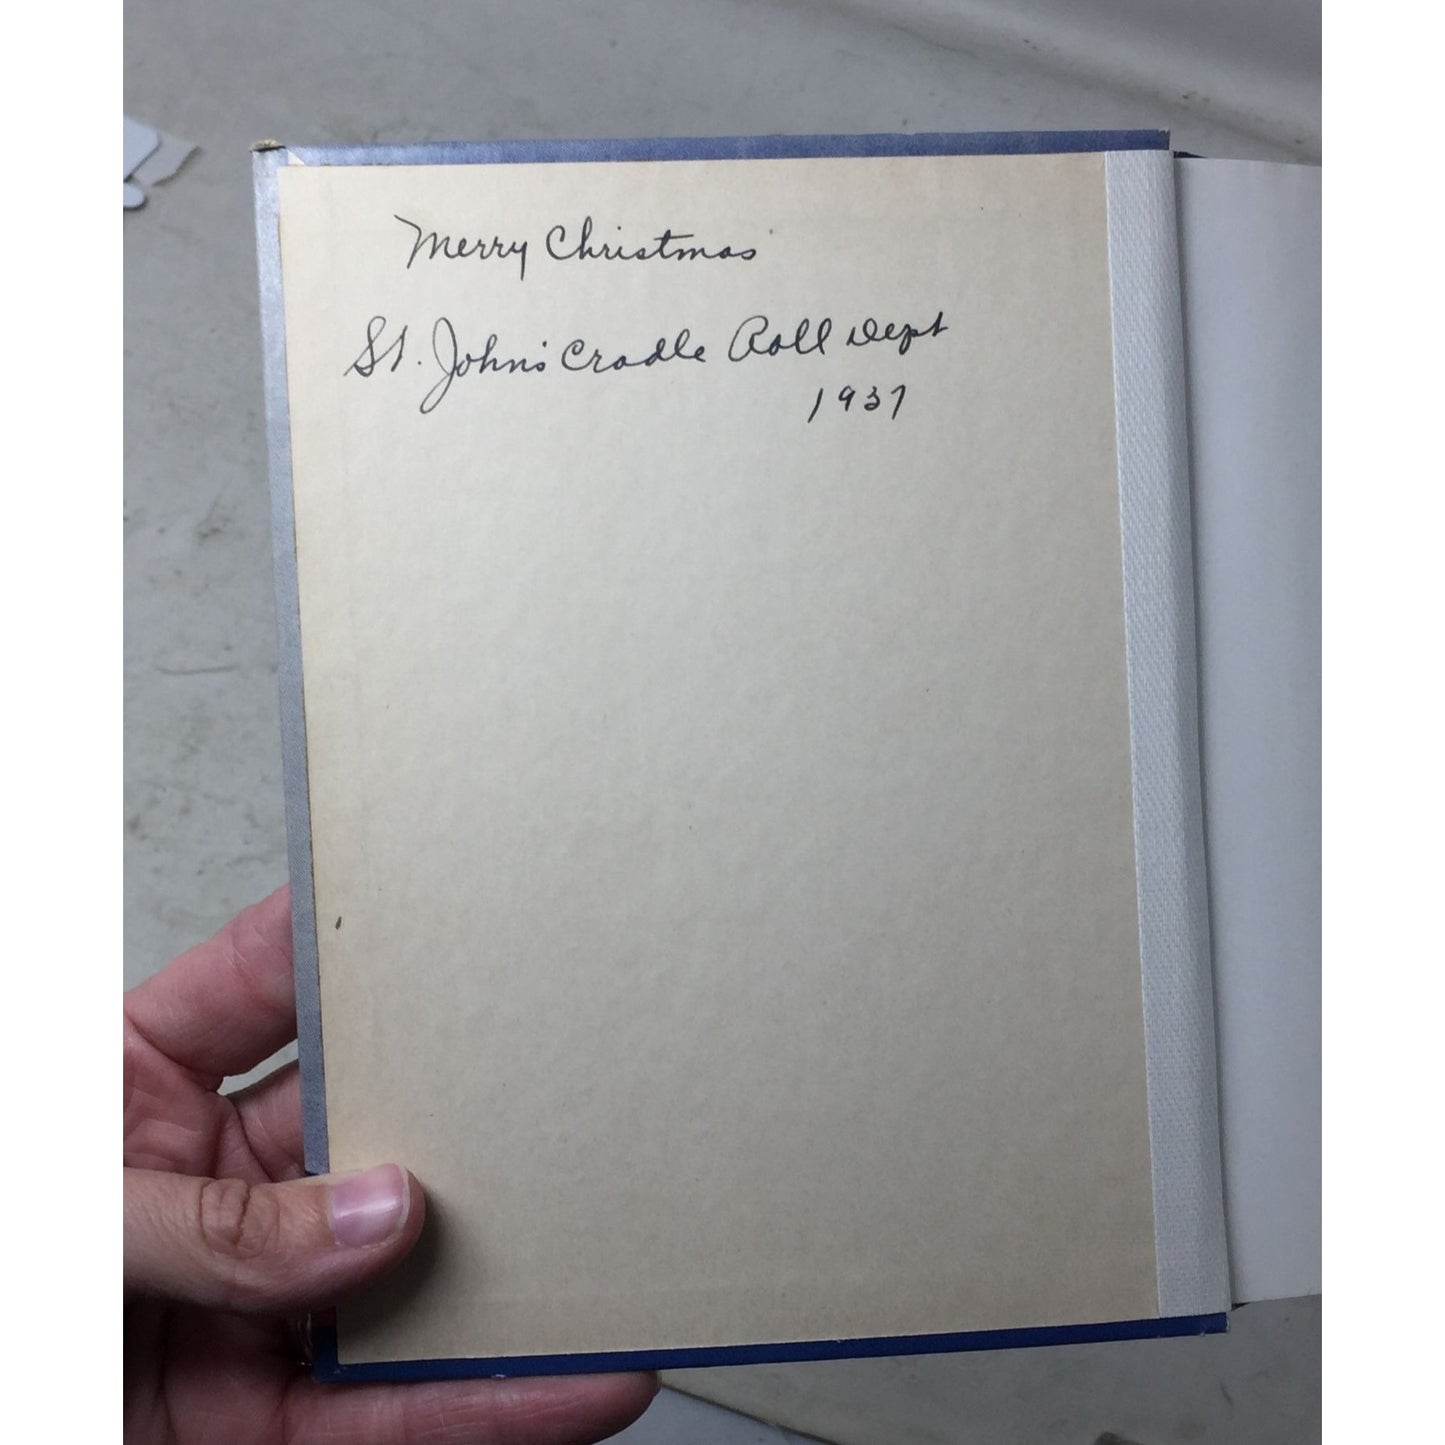 Merry Christmas
St. John's Cradle Roll Dept
1937